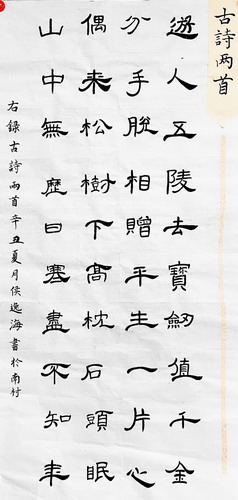 古詩两首
遊人五陵去寶劒值千金
分手脫相贈平生一片心
偶来松樹下高枕石頭眠
山中無歷日寒盡不知年
右録古詩兩首辛丑夏月侯逸海書於南竹